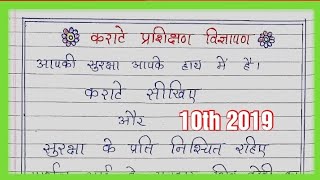 कराटे प्रशिक्षण विज्ञापण
आपकी सुरक्षा आपके हाथ में है।
कराटे सीखिए
और
10th 2019
सुरक्षा के प्रति निश्चित रहिए